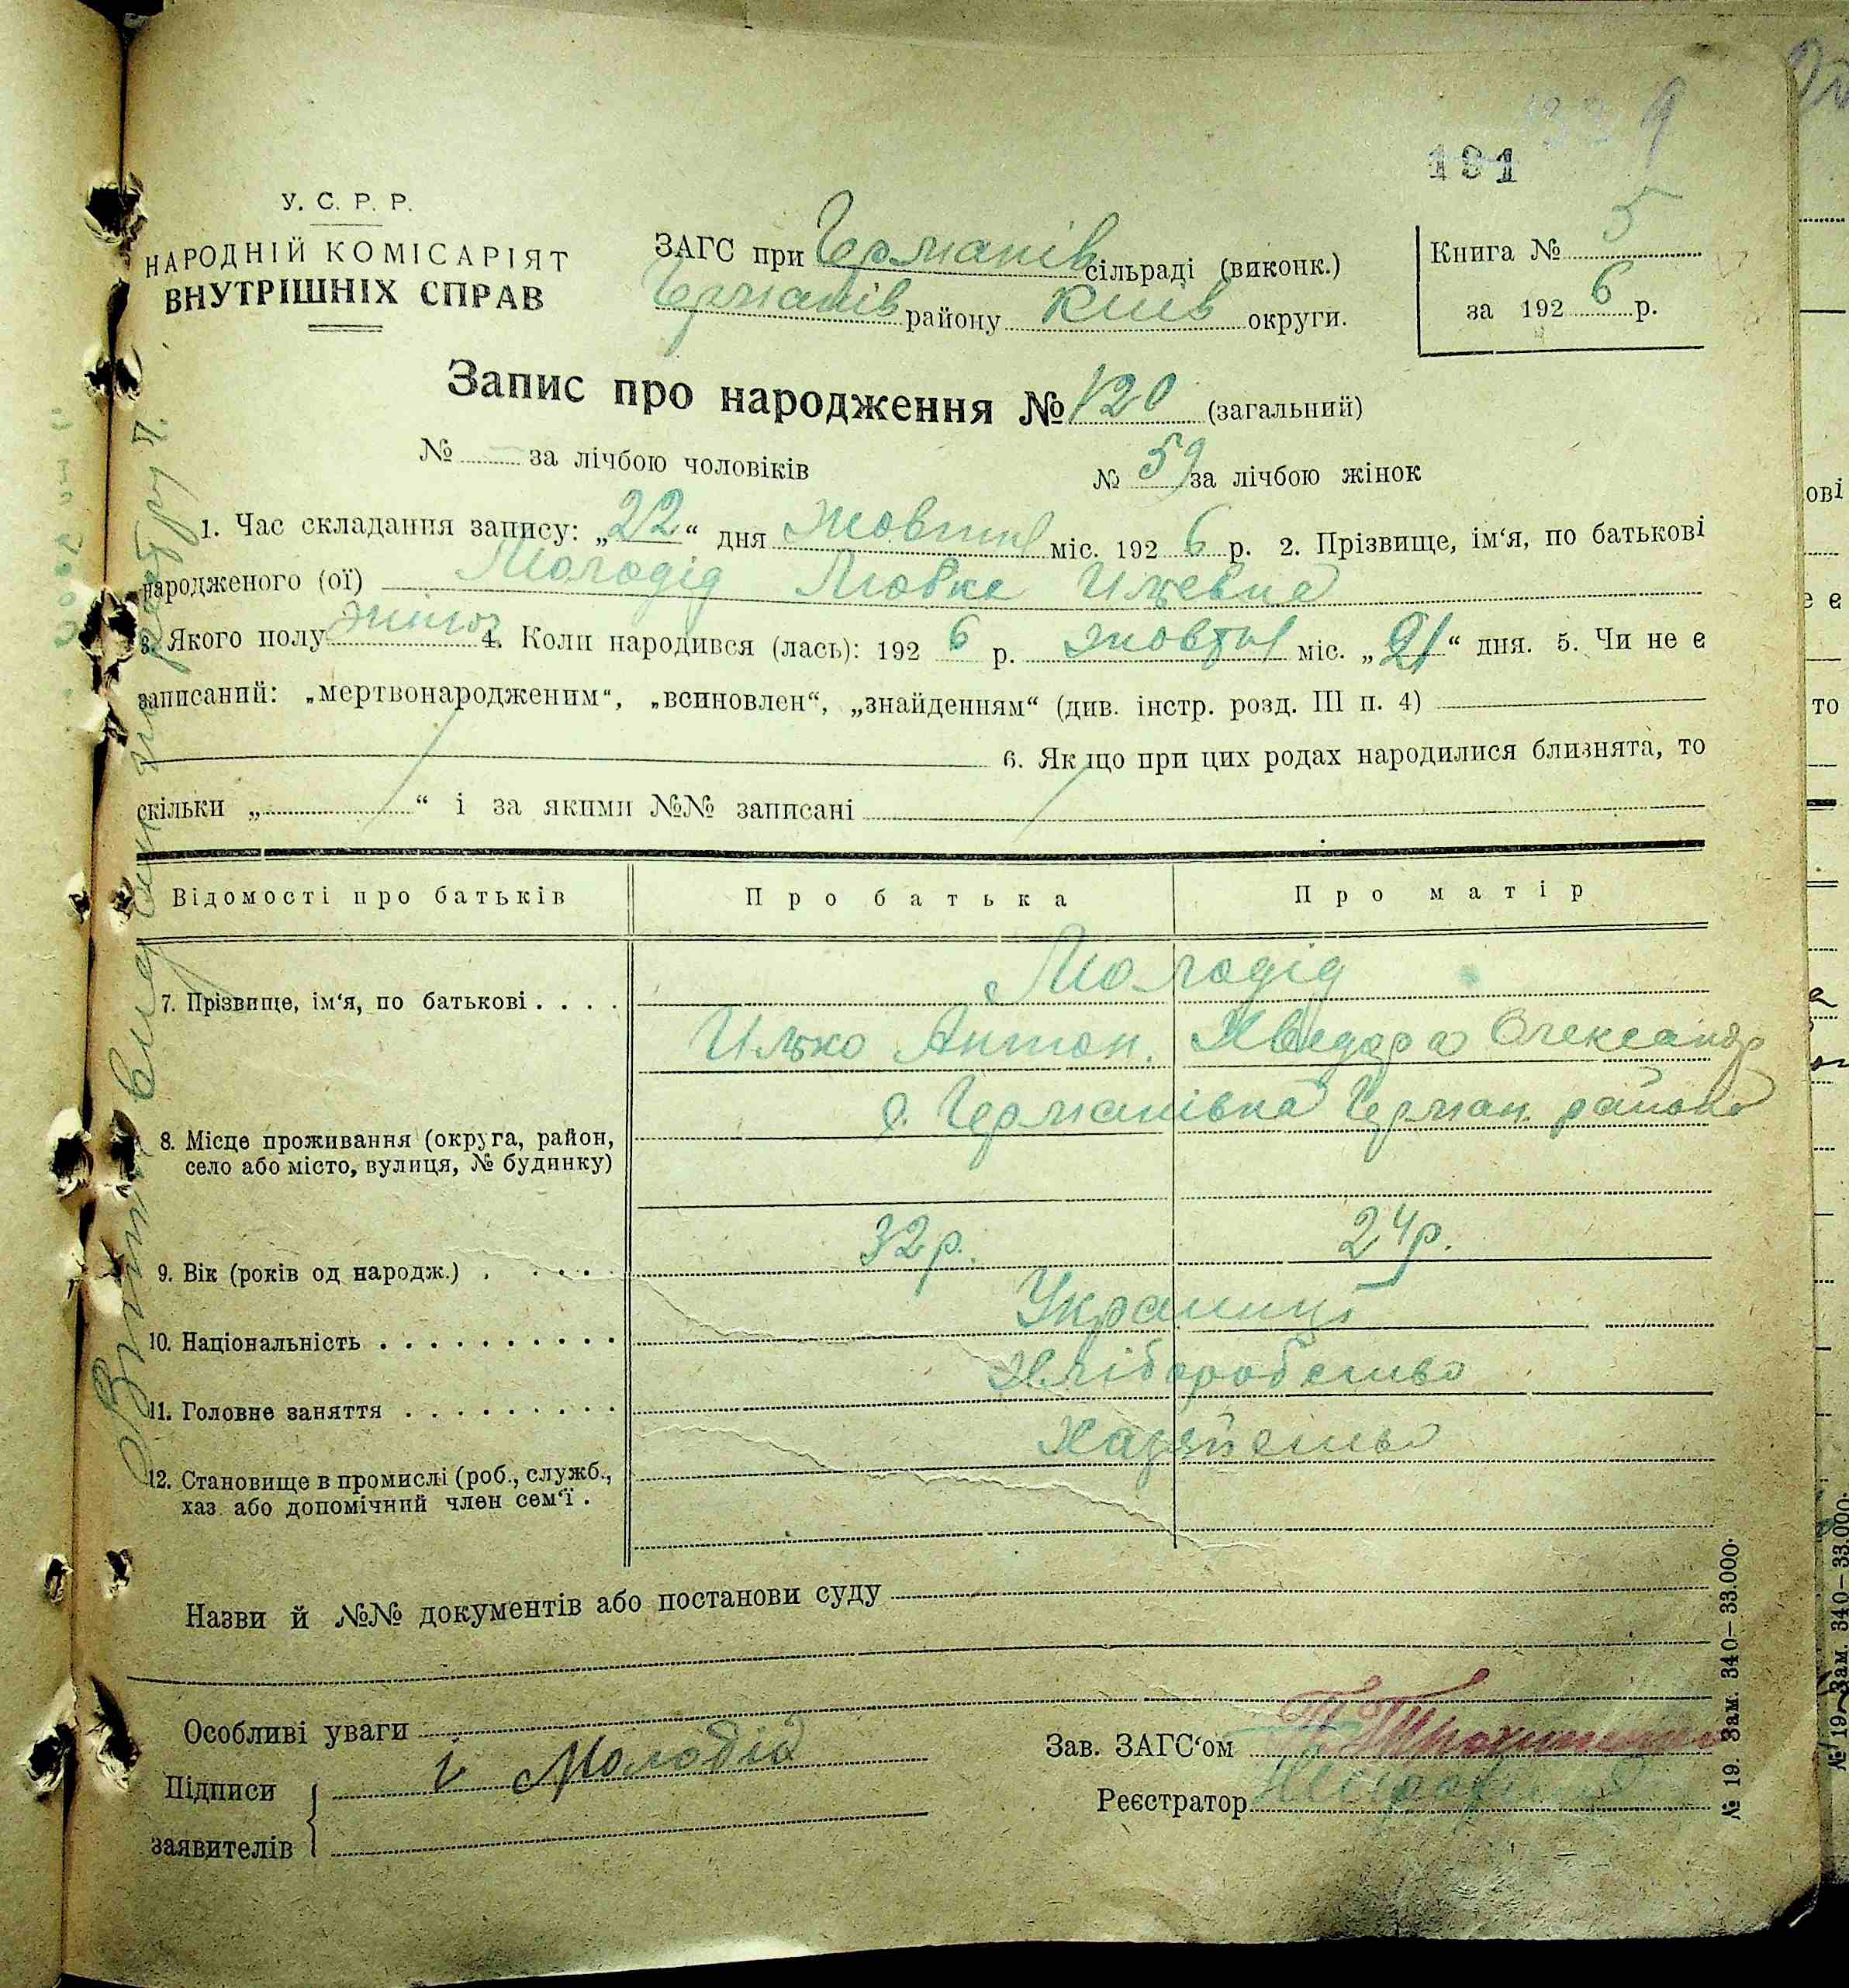 181
У. С. Р. Р.
НАРОДНІЙ КОМІСАРІЯТ
ВНУТРІШНІХ СПРАВ
ЗАГС при Германів сільраді (виконк.)
Германів району Київ округи.
Книга № 5
за 192 6 р.
Запис про народження № 120 (загальний)
№ за лічбою чоловіків № 59 за лічбою жінок
1. Час складання запису: „22“ дня Жовтня міс. 192 6 р. 2. Прізвище, ім‘я, по батькові
народженого (ої) Молодід Любка Ильєвна
3. Якого полу жіноч 4. Коли народився (лась): 192 6 р. жовтня міс. „21“ дня. 5. Чи не є
записаний: „мертвонародженим“, „всиновлен“, „знайденням“ (див. інстр. розд. III п. 4)
6. Якщо при цих родах народилися близнята, то
скільки „ “ і за якими №№ записані
Відомості про батьків Про батька Про матір
7. Прізвище, ім‘я, по батькові . . . . Молодід
Илько Антон. Хведора Олександр
с. Германівка Герман. району
8. Місце проживання (округа, район,
село або місто, вулиця, № будинку)
9. Вік (років од народж.) . . . . . 32 р. 24 р.
10. Національність . . . . . . . . . . Украинці
11. Головне заняття . . . . . . . . . Хліборобство
12. Становище в промислі (роб., служб.,
хаз. або допомічний член сем‘ї . Хазяйство
Назви й №№ документів або постанови суду
Особливі уваги
Підписи
заявителів
і Молодід
Зав. ЗАГС‘ом
Реєстратор
№ 19. Зам. 340—33.000.